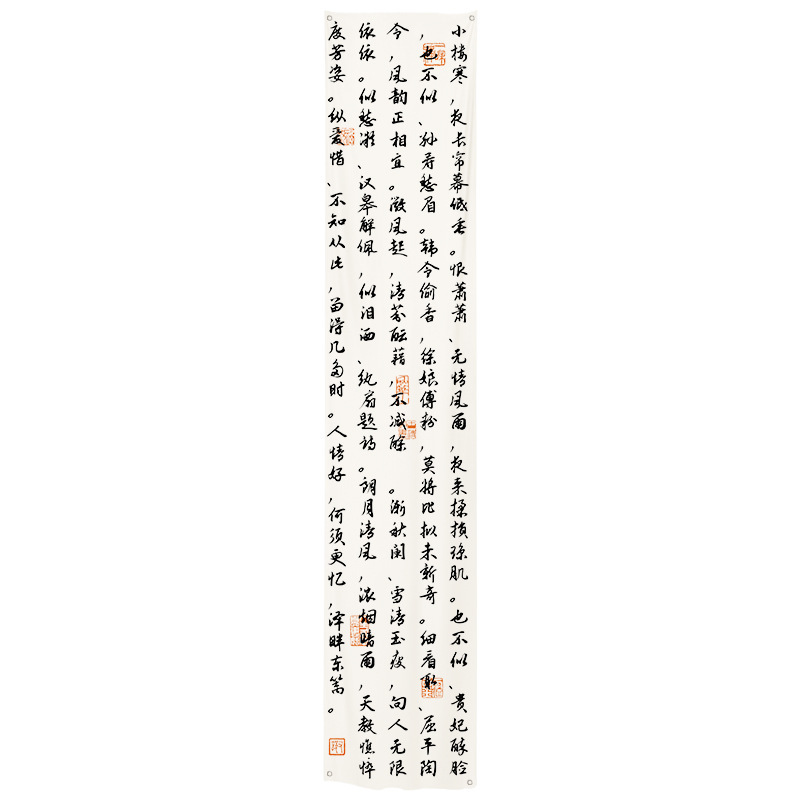 小楼寒,夜长帘幕低垂。恨萧萧、无情风雨,夜来揉损琼肌。也不似、贵妃醉脸
,也不似、孙寿愁眉。韩令偷香,徐娘傅粉,莫将比拟未新奇。细看取、屈平陶
令,风韵正相宜。微风起,清芬酝藉,不减酴 。渐秋阑、雪清玉瘦,向人无限
依依。似愁凝、汉皋解佩,似泪洒、纨扇题诗。朗月清风,浓烟暗雨,天教憔悴
度芳姿。纵爱惜、不知从此,留得几多时。人情好,何须更忆,泽畔东篱。